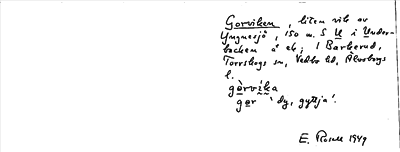 Gorviken, liten vik av
Yngnesjö, 150 m. S U i Under-
backen å ek; i Barkerud,
Torrskogs sn, Vedbo hd, Älvsborgs
l.
gòrvika
gor 'dy, gyttja'.
E. Rosell 1949